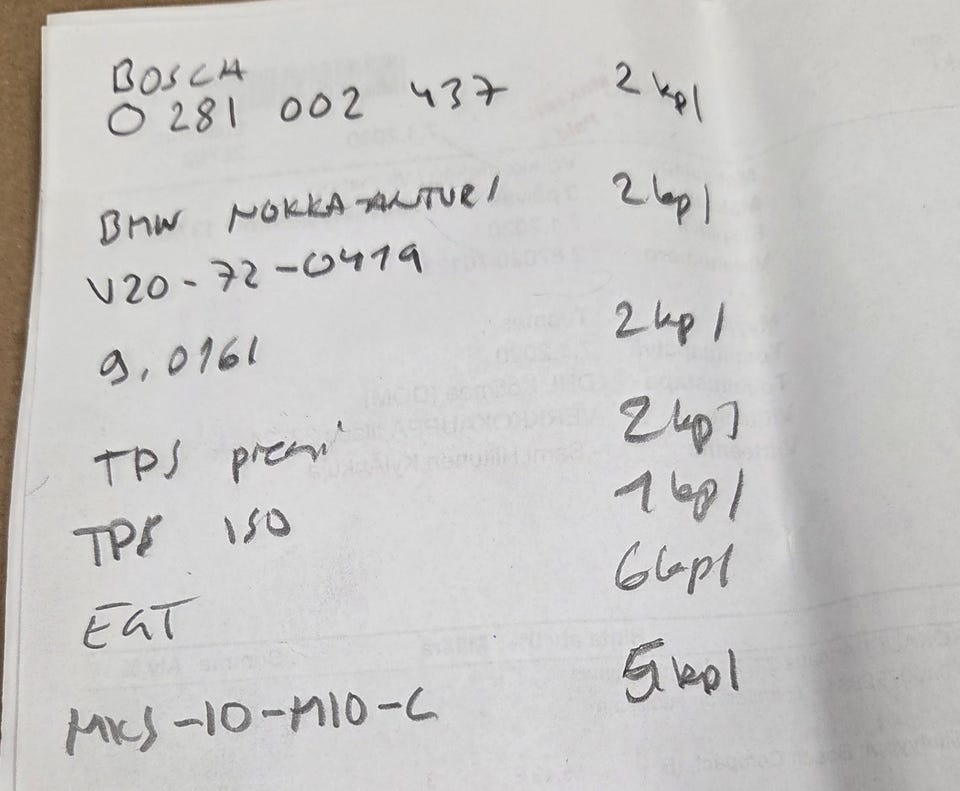 BOSCH
0 281 002 437 2 kpl
BMW NOKKA-ANTURI 2 kpl
V20-72-0419
9.0161 2 kpl
TPS pieni 2 kpl
TPS ISO 1 kpl
EGT 6 kpl
MKS-10-M10-C 5 kpl